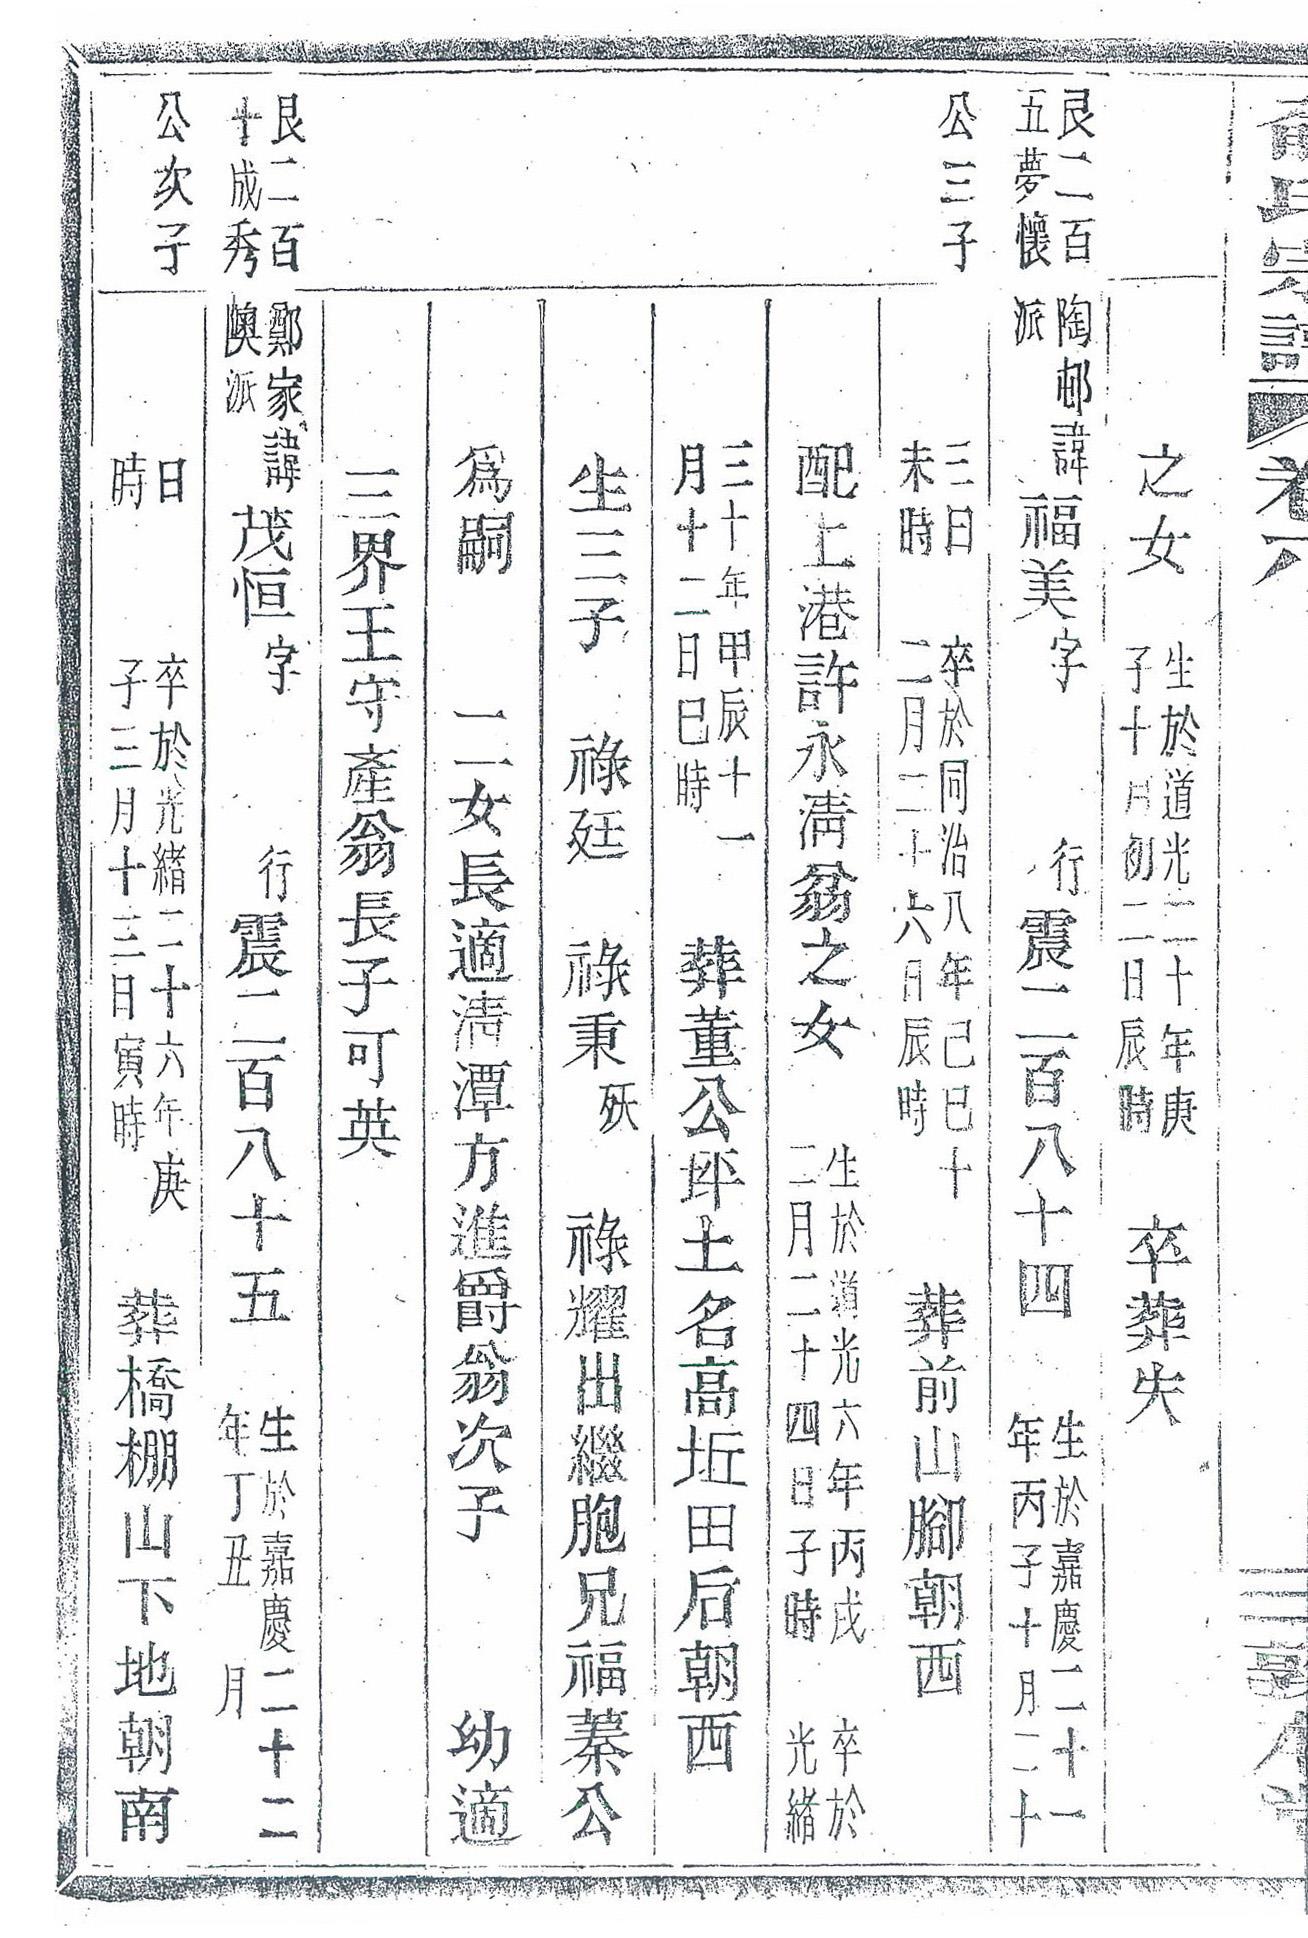 氏宗譜 卷六
之女 生於道光二十年庚子十月初二日辰時 卒葬失
艮二百五夢懷公三子
陶邨派 諱福美字 行震二百八十四 生於嘉慶二十一年丙子十月二十
三日未時 卒於同治八年己巳十二月二十六日辰時 葬前山腳朝西
配上港許永淸翁之女 生於道光六年丙戌二月二十四日子時 卒於光緖
三十年甲辰十一月十二日巳時 葬董公坪土名高坵田后朝西
生三子 祿廷 祿秉 殀 祿耀出繼胞兄福蓁公
爲嗣 二女長適淸潭方進爵翁次子 幼適
三界王守產翁長子可英
艮二百十成秀公次子
鄭家嶴派 諱茂恒字 行震二百八十五 生於嘉慶二十二年丁丑 月
日 時 卒於光緖二十六年庚子三月十三日寅時 葬橋棚山下地朝南